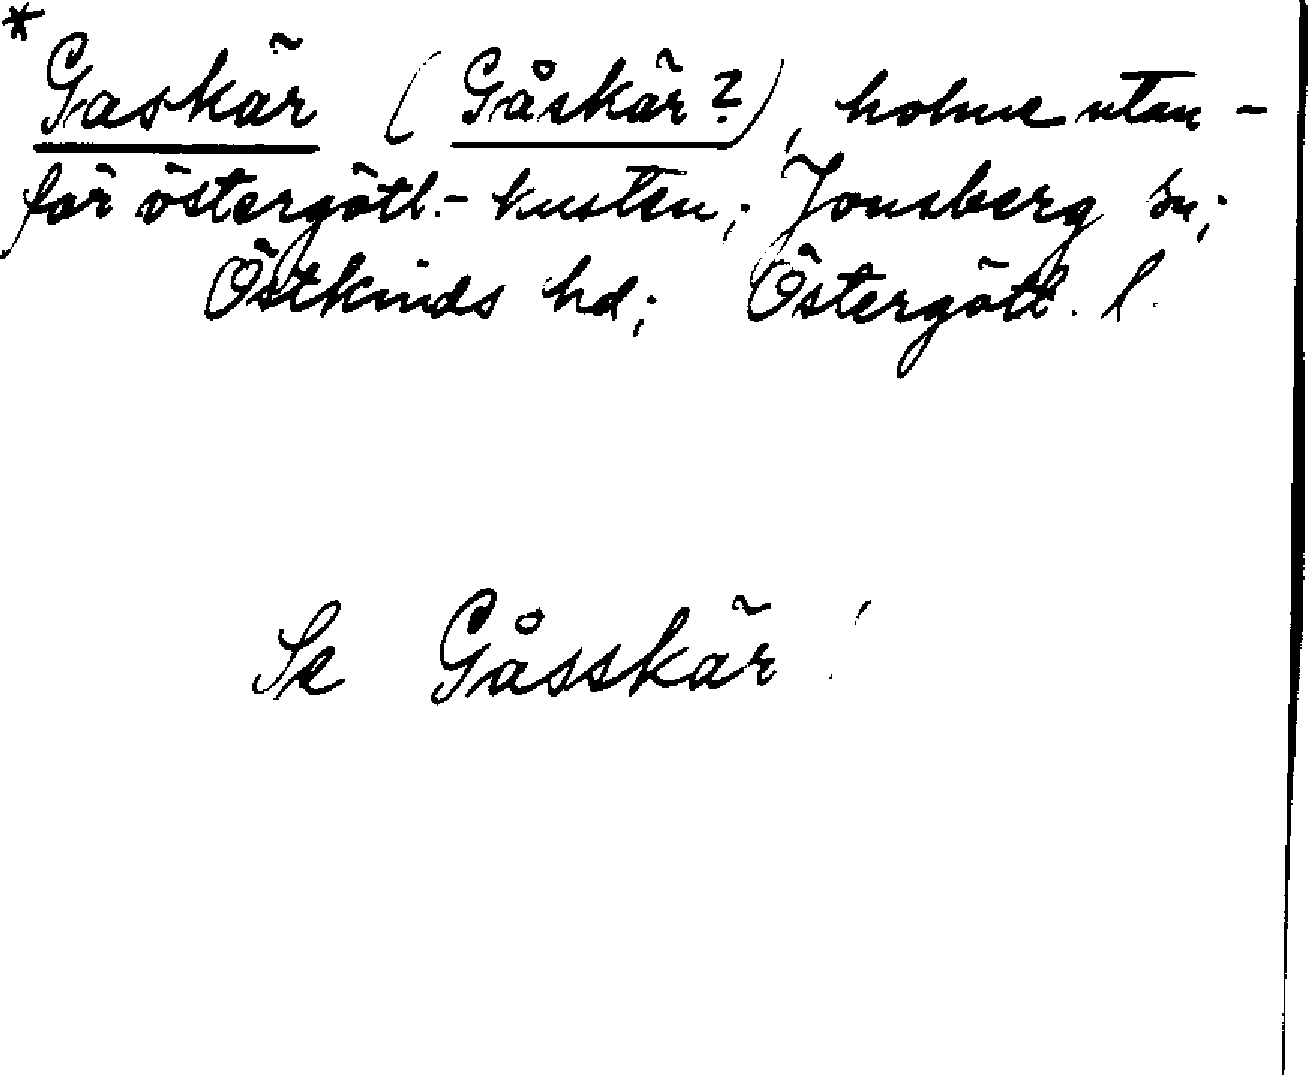 * Gaskär (Gåskär?), holme utan-
för östergötl.-kusten; Jonsberg sn;
Östkinds hd; Östergötl. l.
Se Gåsskär!